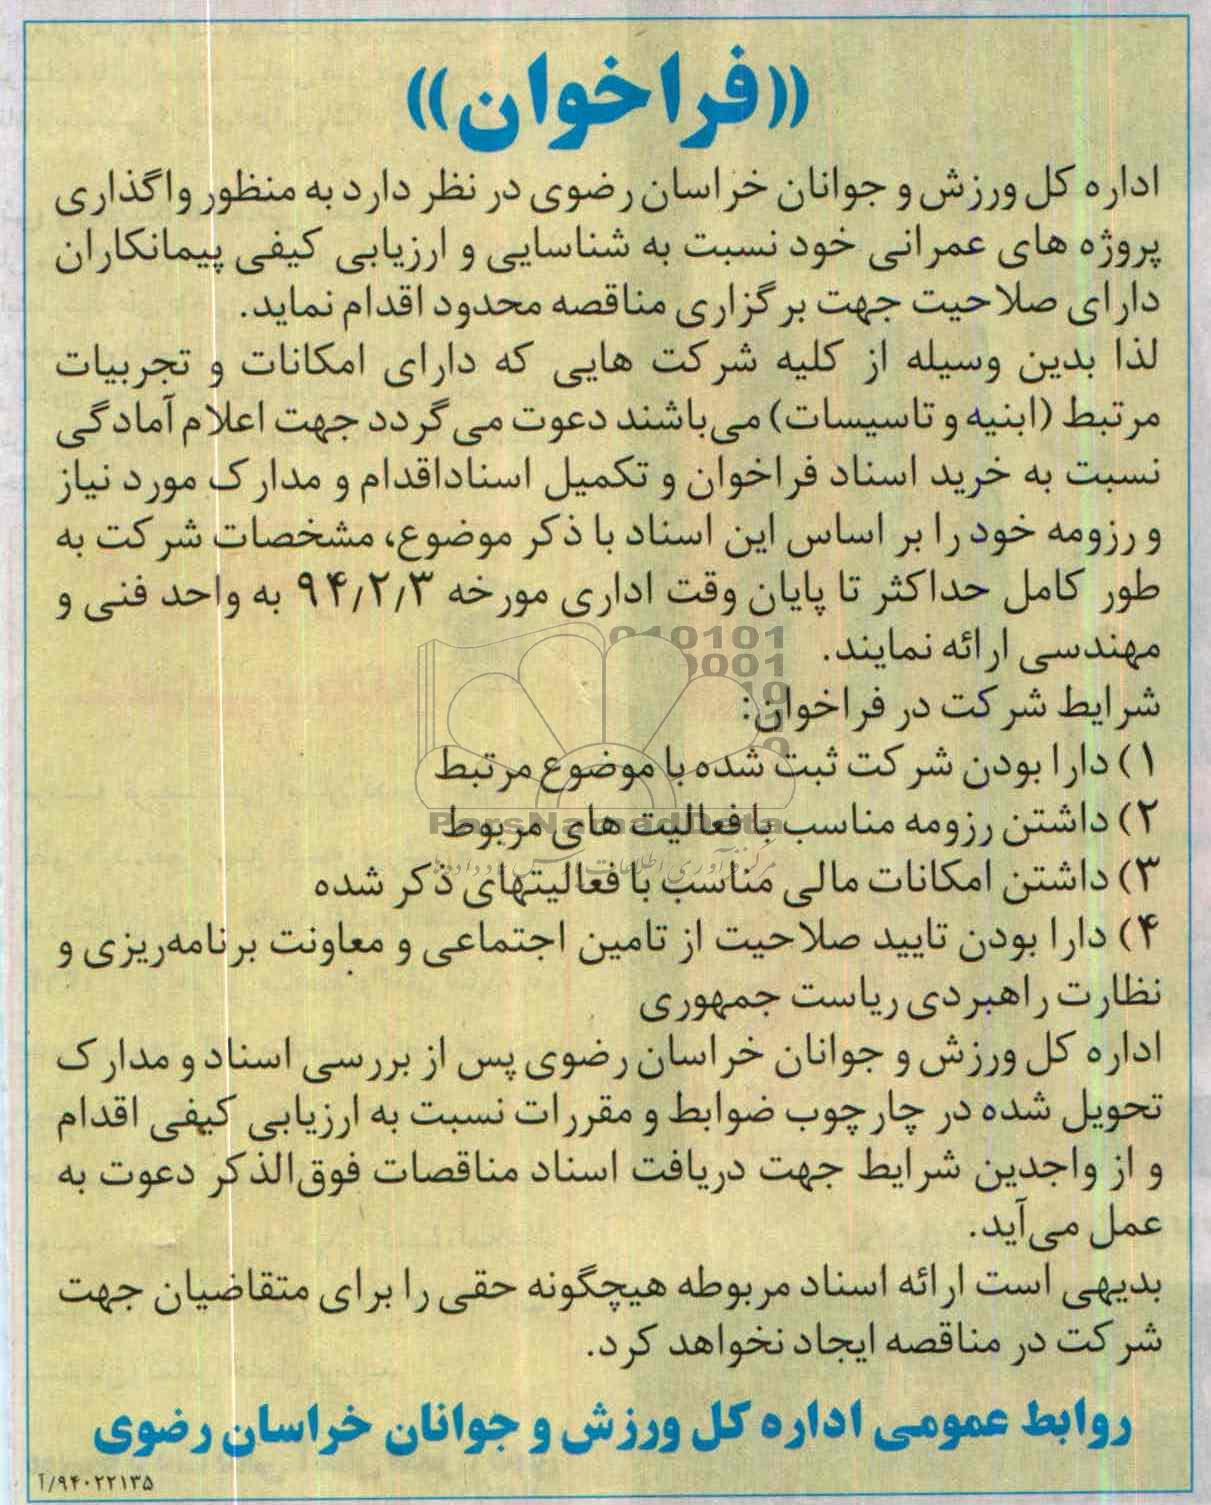 «فراخوان»
اداره کل ورزش و جوانان خراسان رضوی در نظر دارد به منظور واگذاری
پروژه های عمرانی خود نسبت به شناسایی و ارزیابی کیفی پیمانکاران
دارای صلاحیت جهت برگزاری مناقصه محدود اقدام نماید.
لذا بدین وسیله از کلیه شرکت هایی که دارای امکانات و تجربیات
مرتبط (ابنیه و تاسیسات) می‌باشند دعوت می گردد جهت اعلام آمادگی
نسبت به خرید اسناد فراخوان و تکمیل اسناداقدام و مدارک مورد نیاز
و رزومه خود را بر اساس این اسناد با ذکر موضوع، مشخصات شرکت به
طور کامل حداکثر تا پایان وقت اداری مورخه ۹۴/۲/۳ به واحد فنی و
مهندسی ارائه نمایند.
شرایط شرکت در فراخوان:
۱) دارا بودن شرکت ثبت شده با موضوع مرتبط
۲) داشتن رزومه مناسب با فعالیت های مربوط
۳) داشتن امکانات مالی مناسب با فعالیتهای ذکر شده
۴) دارا بودن تایید صلاحیت از تامین اجتماعی و معاونت برنامه‌ریزی و
نظارت راهبردی ریاست جمهوری
اداره کل ورزش و جوانان خراسان رضوی پس از بررسی اسناد و مدارک
تحویل شده در چارچوب ضوابط و مقررات نسبت به ارزیابی کیفی اقدام
و از واجدین شرایط جهت دریافت اسناد مناقصات فوق‌الذکر دعوت به
عمل می‌آید.
بدیهی است ارائه اسناد مربوطه هیچگونه حقی را برای متقاضیان جهت
شرکت در مناقصه ایجاد نخواهد کرد.
روابط عمومی اداره کل ورزش و جوانان خراسان رضوی
۹۴۰۲۲۱۳۵/آ
ParsNamadData